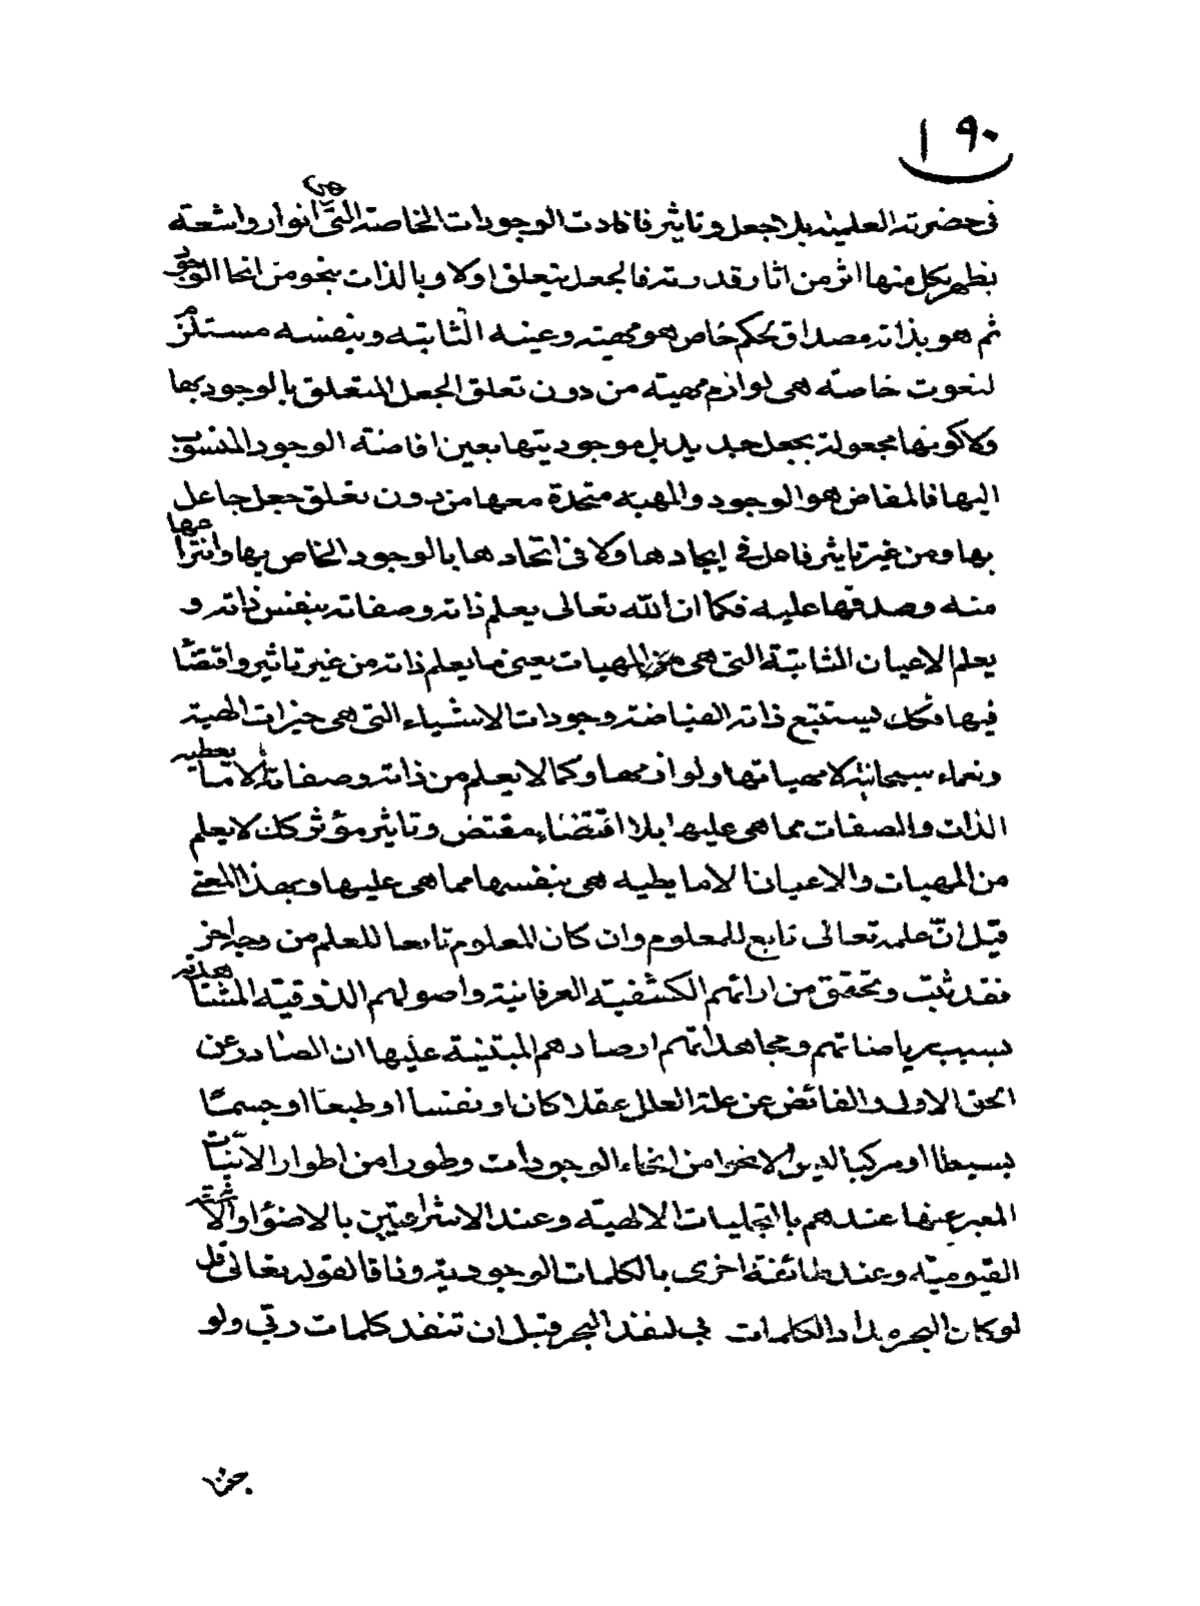 ١٩٠
في حضرته العلميه بلا جعل وتاثير فافادت الوجودات الخاصة التي هي انوار واشعته
يظهر بكل منها اثر من اثار قدرته فالجعل يتعلق اولا وبالذات بنحو من انحا الوجود
ثم هو بذاته مصداق لحكم خاص هو مهيته وعينه الثابته وبنفسه مستلزم
لنعوت خاصته هي لوازم مهيته من دون تعلق الجعل المتعلق بالوجود بها
ولا كونها مجعولة بجعل جديد بل موجوديتها بعين افاضته الوجود المنسوب
اليها فالمفاض هو الوجود والمهيه متحدة معها من دون تعلق جعل جاعل
بها ومن غير تاثير فاعل في ايجادها ولا في اتحادها بالوجود الخاص بها وانتزاعها
منه وصدقها عليه فكما ان الله تعالى يعلم ذاته وصفاته بنفس ذاته و
يعلم الاعيان الثابتة التي هي المهيات بعين ما يعلم ذاته من غير تاثير واقتضا
فيها فكك يستتبع ذاته الفياضة وجودات الاشياء التي هي خيرات الهية
ونعماء سبحانية لا مهياتها ولوازمها وكما لا يعلم من ذاته وصفاته الا ما يعطيه
الذات والصفات مما هي عليها بلا اقتضاء مقتض وتاثير مؤثر كك لا يعلم
من المهيات والاعيان الا ما يطيه هي بنفسها مما هي عليها وبهذا المعنى
قيل ان علمه تعالى تابع للمعلوم وان كان المعلوم تابعا للعلم من وجه اخر
فقد ثبت وتحقق من ارائهم الكشفية العرفانية واصولهم الذوقية المشتاهدته
بسبب رياضاتهم ومجاهداتهم ارصادهم المبتنية عليها ان الصادر عن
الحق الاول والفائض عن علة العلل عقلا كان او نفسا او طبعا او جسما
بسيطا او مركبا ليس الا نحوا من انحاء الوجودات وطورا من اطوار الانيات
المعبر عنها عندهم بالتجليات الالهية وعند الاشراقيين بالاضوا والاشعة
القيومية وعند طائفة اخرى بالكلمات الوجودية وفاقا لقوله تعالى قل
لو كان البحر مدادا لكلمات ربي لنفد البحر قبل ان تنفد كلمات ربي ولو